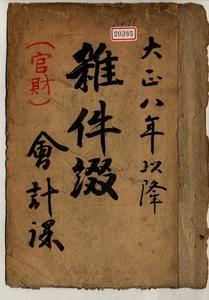 大正八年以降
雜件綴
會計課
(官財)
20385